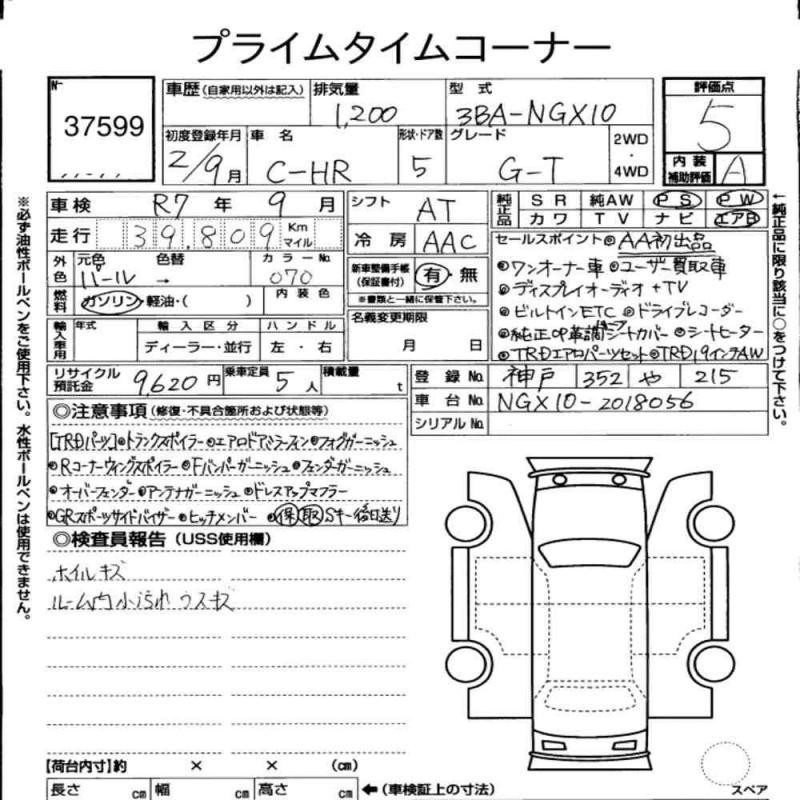 プライムタイムコーナー
No 37599
車歴 (自家用以外は記入) 排気量 1,200 型式 3BA-NGX10 評価点 5
初度登録年月 2/9月 車名 C-HR 形状・ドア数 5 グレード G-T 2WD・4WD 内装補助評価 A
車検 R7年 9月 シフト AT 純正品 SR 純AW PS PW
カワ TV ナビ エアB
走行 39,809 Km マイル 冷房 AAC
セールスポイント ◎AA初出品
外色 元色 パール 色替 → カラーNo. 070
新車整備手帳(保証書付) 有・無
※書類と一緒に保管下さい。
◎ワンオーナー車 ◎ユーザー買取車
◎ディスプレイオーディオ+TV
燃料 ガソリン・軽油・( ) 内装色
名義変更期限 月 日
◎ビルトインETC ◎ドライブレコーダー
◎純正OP革調シートカバー ◎シートヒーター
◎TRDエアロパーツセット ◎TRD19インチAW
輸入車用 年式 輸入区分 ディーラー・並行 ハンドル 左・右
リサイクル預託金 9,620円 乗車定員 5人 積載量 t
登録No. 神戸 352 や 215
車台No. NGX10-2018056
シリアルNo.
◎注意事項 (修復・不具合箇所および状態等)
[TRDパーツ]◎トランクスポイラー ◎エアロドアミラーフィン ◎フォグガーニッシュ
◎Rコーナーウィングスポイラー ◎Fバンパーガーニッシュ ◎フェンダーガーニッシュ
◎オーバーフェンダー ◎アンテナガーニッシュ ◎ドレスアップマフラー
◎GRスポーツサイドバイザー ◎ヒッチメンバー ◎保 取 Sキー後日送り
◎検査員報告 (USS使用欄)
ホイルキズ
ルーム内小汚れ ウスキズ
【荷台内寸】約 × × (cm)
長さ cm 幅 cm 高さ cm ←(車検証上の寸法)
スペア
※必ず油性ボールペンをご使用下さい。水性ボールペンは使用できません。
←純正品に限り該当に○をつけて下さい。